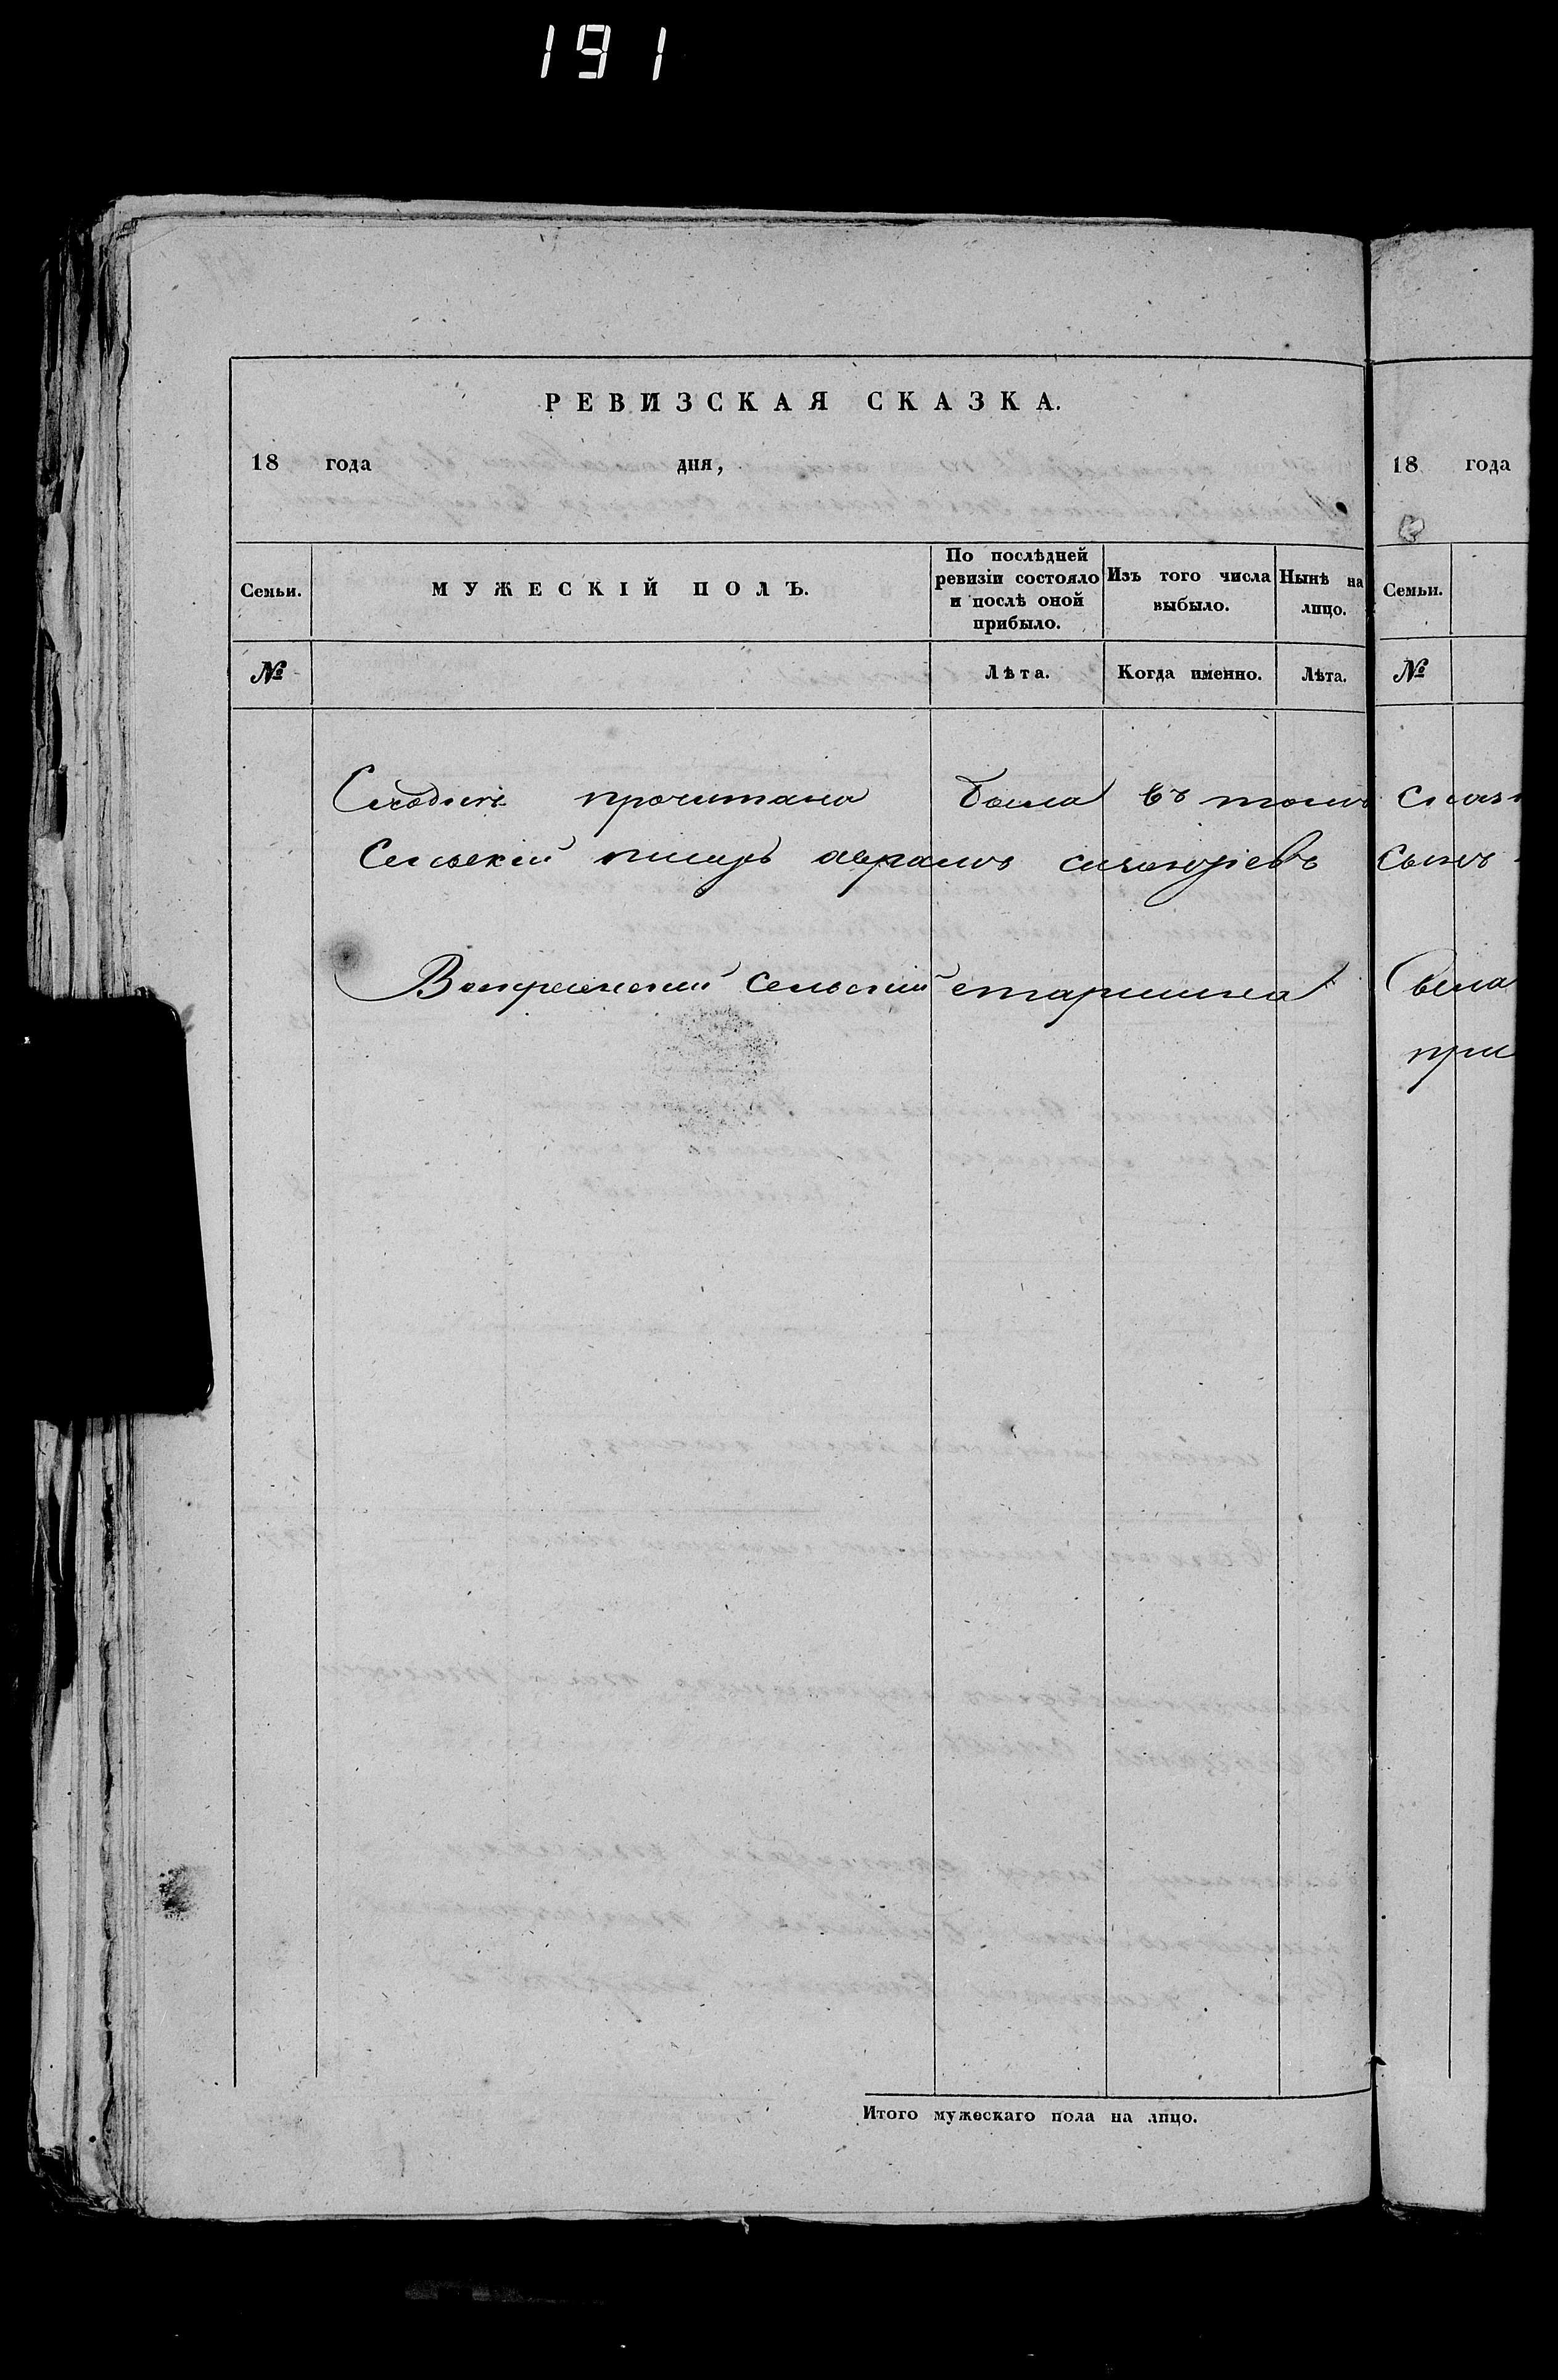 191
РЕВИЗСКАЯ СКАЗКА.
18 года дня,
Семьи.
МУЖЕСКІЙ ПОЛЪ.
По послѣдней ревизіи состояло и послѣ оной прибыло.
Изъ того числа выбыло.
Нынѣ на лицо.
№
Лѣта.
Когда именно.
Лѣта.
прочитана была въ томъ
Сельскій писарь
Сельскій старшина
Итого мужескаго пола на лицо.
18 года
Семьи.
№
сынъ
была
при